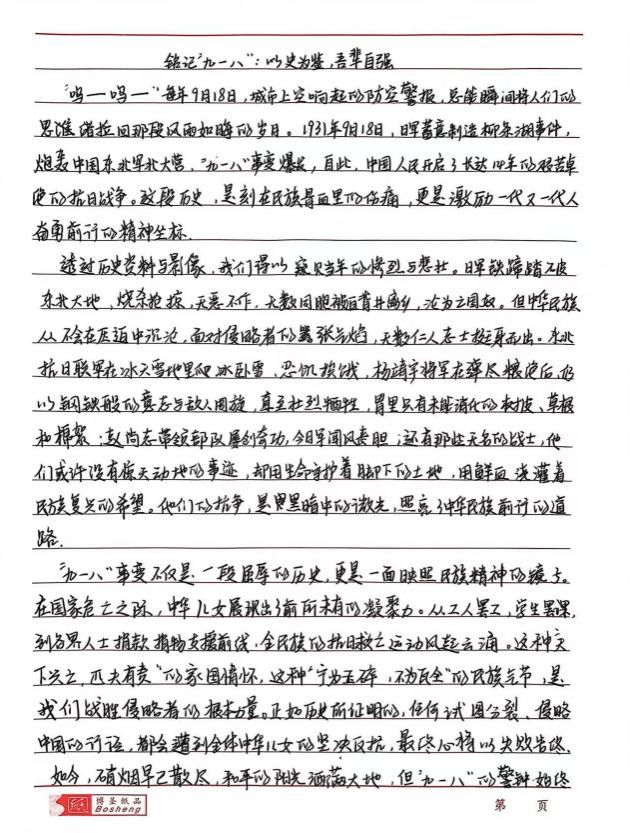 铭记"九一八":以史为鉴,吾辈自强
"呜一呜一"每年9月18日,城市上空响起的防空警报,总能瞬间将人们的
思绪拉回那段风雨如晦的岁月。1931年9月18日,日军蓄意制造柳条湖事件,
炮轰中国东北军北大营,"九一八"事变爆发,自此,中国人民开启了长达14年的艰苦卓
绝的抗日战争。这段历史,是刻在民族骨血里的伤痛,更是激励一代又一代人
奋勇前行的精神坐标.
透过历史资料与影像,我们得以窥见当年的惨烈与悲壮。日军铁蹄踏破
东北大地,烧杀抢掠,无恶不作,无数同胞被迫背井离乡,沦为亡国奴。但中华民族
从不会在压迫中沉沦,面对侵略者的嚣张气焰,无数仁人志士挺身而出。东北
抗日联军在冰天雪地里爬冰卧雪,忍饥挨饿,杨靖宇将军在弹尽粮绝后,仍
以钢铁般的意志与敌人周旋,直至壮烈牺牲,胃里只有未能消化的树皮、草根
和棉絮;赵尚志带领部队屡创奇功,令日军闻风丧胆;还有那些无名的战士,他
们或许没有惊天动地的事迹,却用生命守护着脚下的土地,用鲜血浇灌着
民族复兴的希望。他们的抗争,是黑暗中的微光,照亮了中华民族前行的道
路.
"九一八"事变不仅是一段屈辱的历史,更是一面映照民族精神的镜子。
在国家危亡之际,中华儿女展现出了前所未有的凝聚力。从工人罢工,学生罢课,
到各界人士捐款捐物支援前线,全民族的抗日救亡运动风起云涌。这种"天
下兴亡,匹夫有责"的家国情怀,这种"宁为玉碎,不为瓦全"的民族气节,是
我们战胜侵略者的根本力量。正如历史所证明的,任何试图分裂、侵略
中国的行径,都会遭到全体中华儿女的坚决反抗,最终必将以失败告终.
如今,硝烟早已散尽,和平的阳光洒满大地,但"九一八"的警钟始终
纸 博圣纸品
Bosheng
第 页